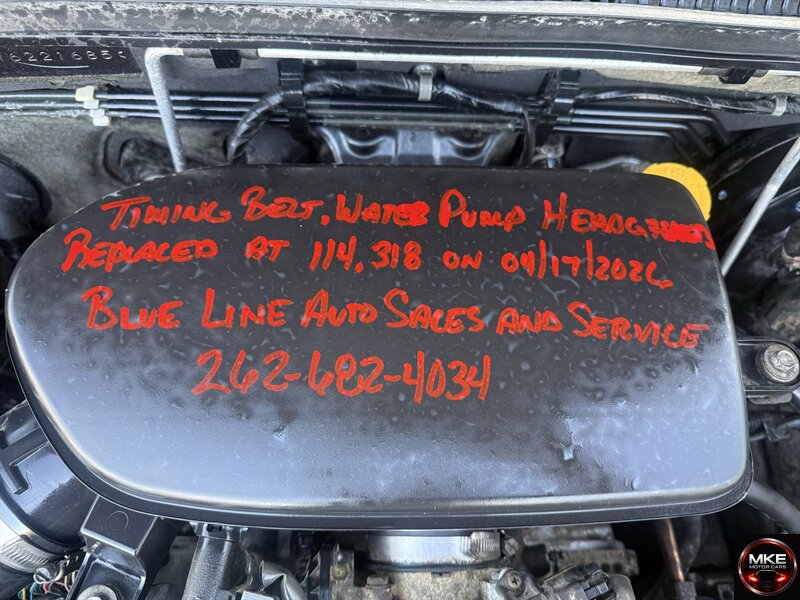 16221685
TIMING BELT, WATER PUMP HEADGASKETS
REPLACED AT 114,318 ON 04/17/2026
BLUE LINE AUTO SALES AND SERVICE
262-682-4034
MKE
MOTOR CARS